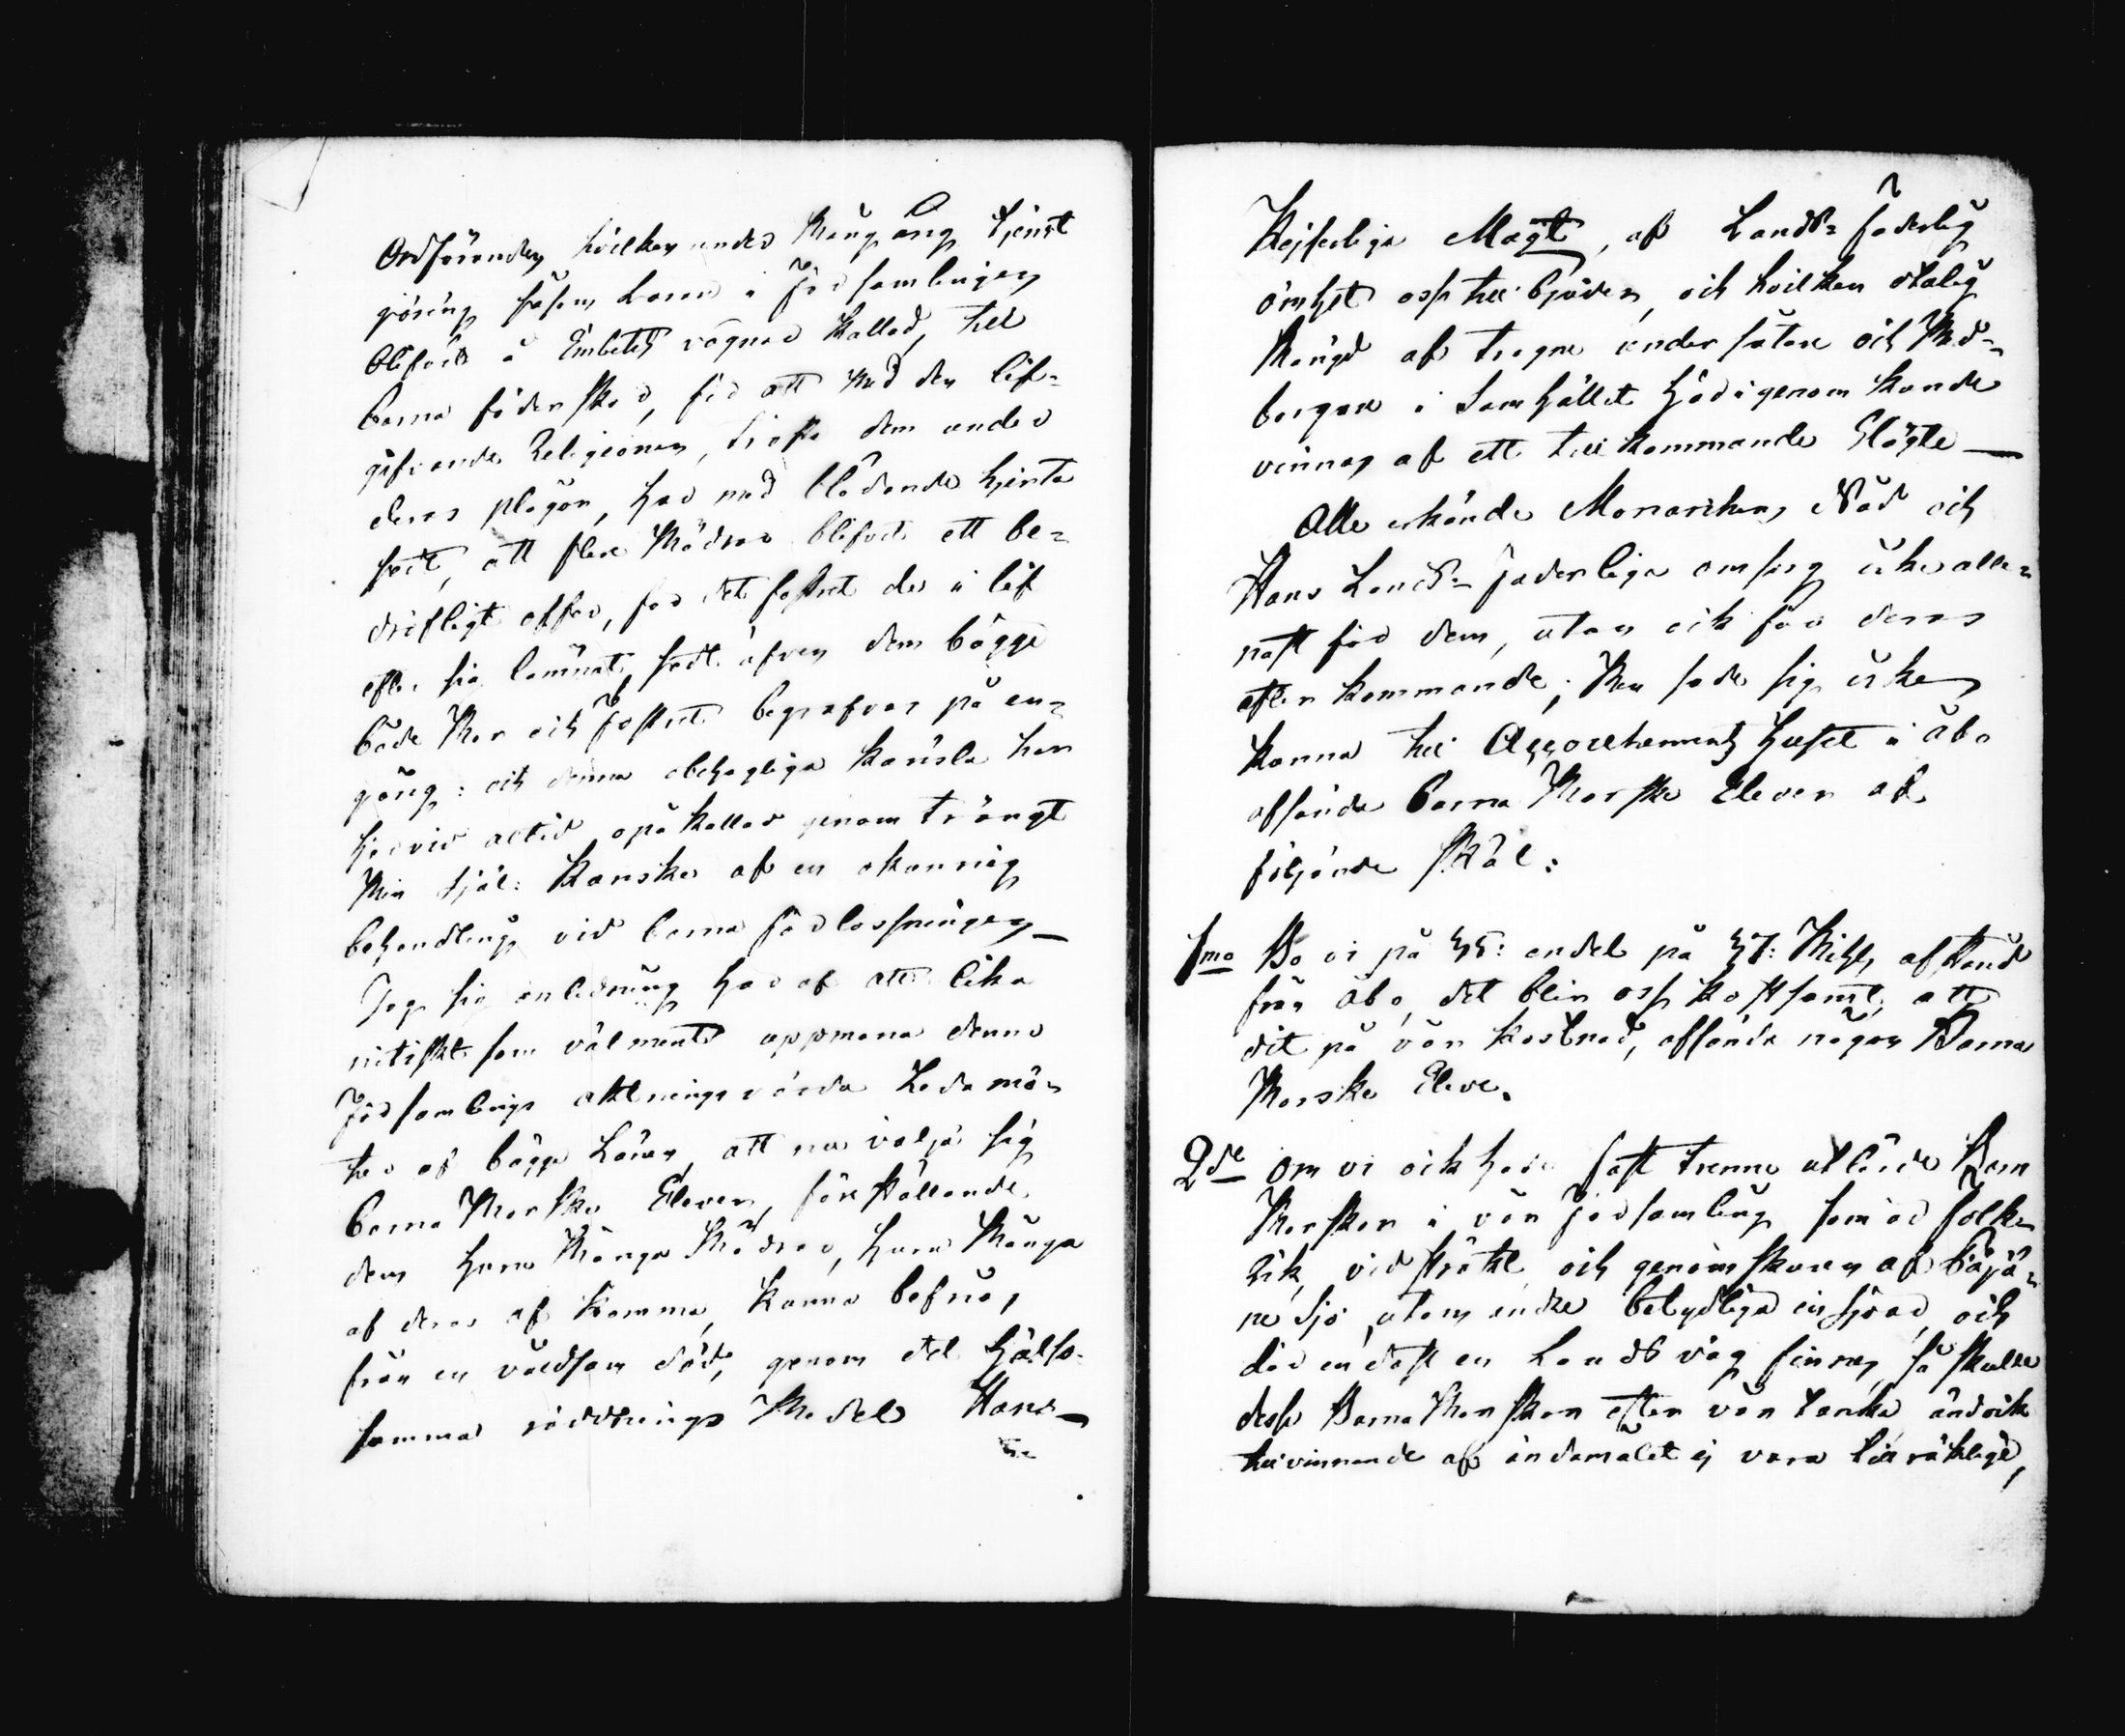 Ordföranden, hvilken under mång årig tjenst
göring såsom Lärare i Församlingen
blifvit å Embetets vägnar kallad, till
barna föderskor, för att med den lif-
gifvande Religionen, trösta dem under
deras plågor, har med blödande hjerta
sedt, att flere Mödrar blifvit ett be-
dröfligt offer, för det fostret de i lif
efter sig lämnat, sedt äfven dem bägge
både Mor och Fostret begrafvas på en
gång: och denna obehagliga känsla har
härvid altid opåkallad genom trängt
Min själ: kanske af en okunnig
behandling vid barna förlossningen —
Tog sig anledning häraf att lika
nitiskt som välment uppmana denne
Församlings aktningsvärda Ledamö-
ter af bägge Könen, att nu välja sig
barna Morske Elever, föreställande
dem huru Många Mödrar, huru Många
af deras afkomma, kunna befrias
från en våldsam död, genom det hälso-
samma räddnings Medel Hans —
Kejserliga Magt, af Lands-faderlig
ömhet oss till bjuder, och hvilken otalig
Mängd af trogne undersåtare och Med-
borgare i Samhället härigenom kunde
vinnas af ett tillkommande Slägte —
Alle erkände Monarkens Nåd och
Hans Lands-faderliga omsorg icke alle-
nast för dem, utan ock för deras
efterkommande; Men sade sig icke
kunna till Accouchements Huset i Åbo
afsända barna Morske Elever af
följande skäl:
1mo Bo vi på 35: en del på 37: Mihls afstånd
från Åbo, det blir oss kostsamt, att
dit på vår kostnad, afsända någon Barna
Morske Eleve.
2de om vi ock hade fast trenne utlärde Barn
Morskor i vår Församling som är folk
rik, vidsträkt och genomskuren af Päjä-
ne Sjö, utom andre betydliga insjöar, och
där endast en Landsväg finnes, så skulle
desse Barna Morskor efter vår tanke ändock
till vinnande af ändamålet ej vara tillräklige,